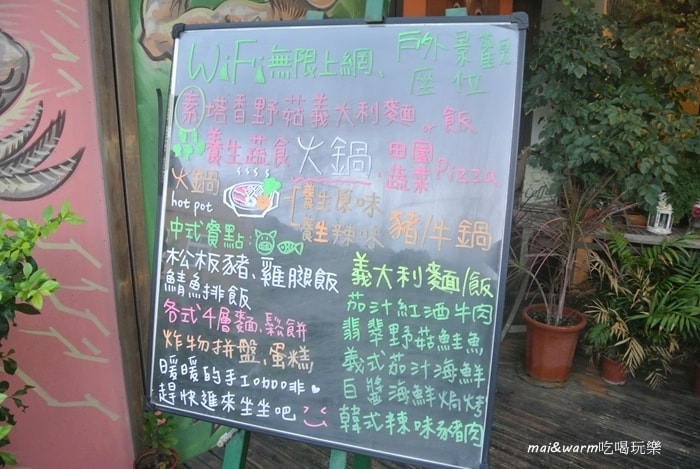 WiFi無限上網、戶外景觀
座位
素塔香野菇義大利麵 or 飯
養生蔬食火鍋、田園
蔬菜Pizza
火鍋
hot pot
養生原味
養生辣味 豬/牛鍋
中式餐點:
松板豬、雞腿飯
鯖魚排飯
各式4層麵、鬆餅
炸物拼盤、蛋糕
暖暖的手工咖啡
趕快進來坐坐吧
義大利麵/飯
茄汁紅酒牛肉
翡翠野菇鮭魚
義式茄汁海鮮
白醬海鮮焗烤
韓式辣味豬肉
mai&warm吃喝玩樂